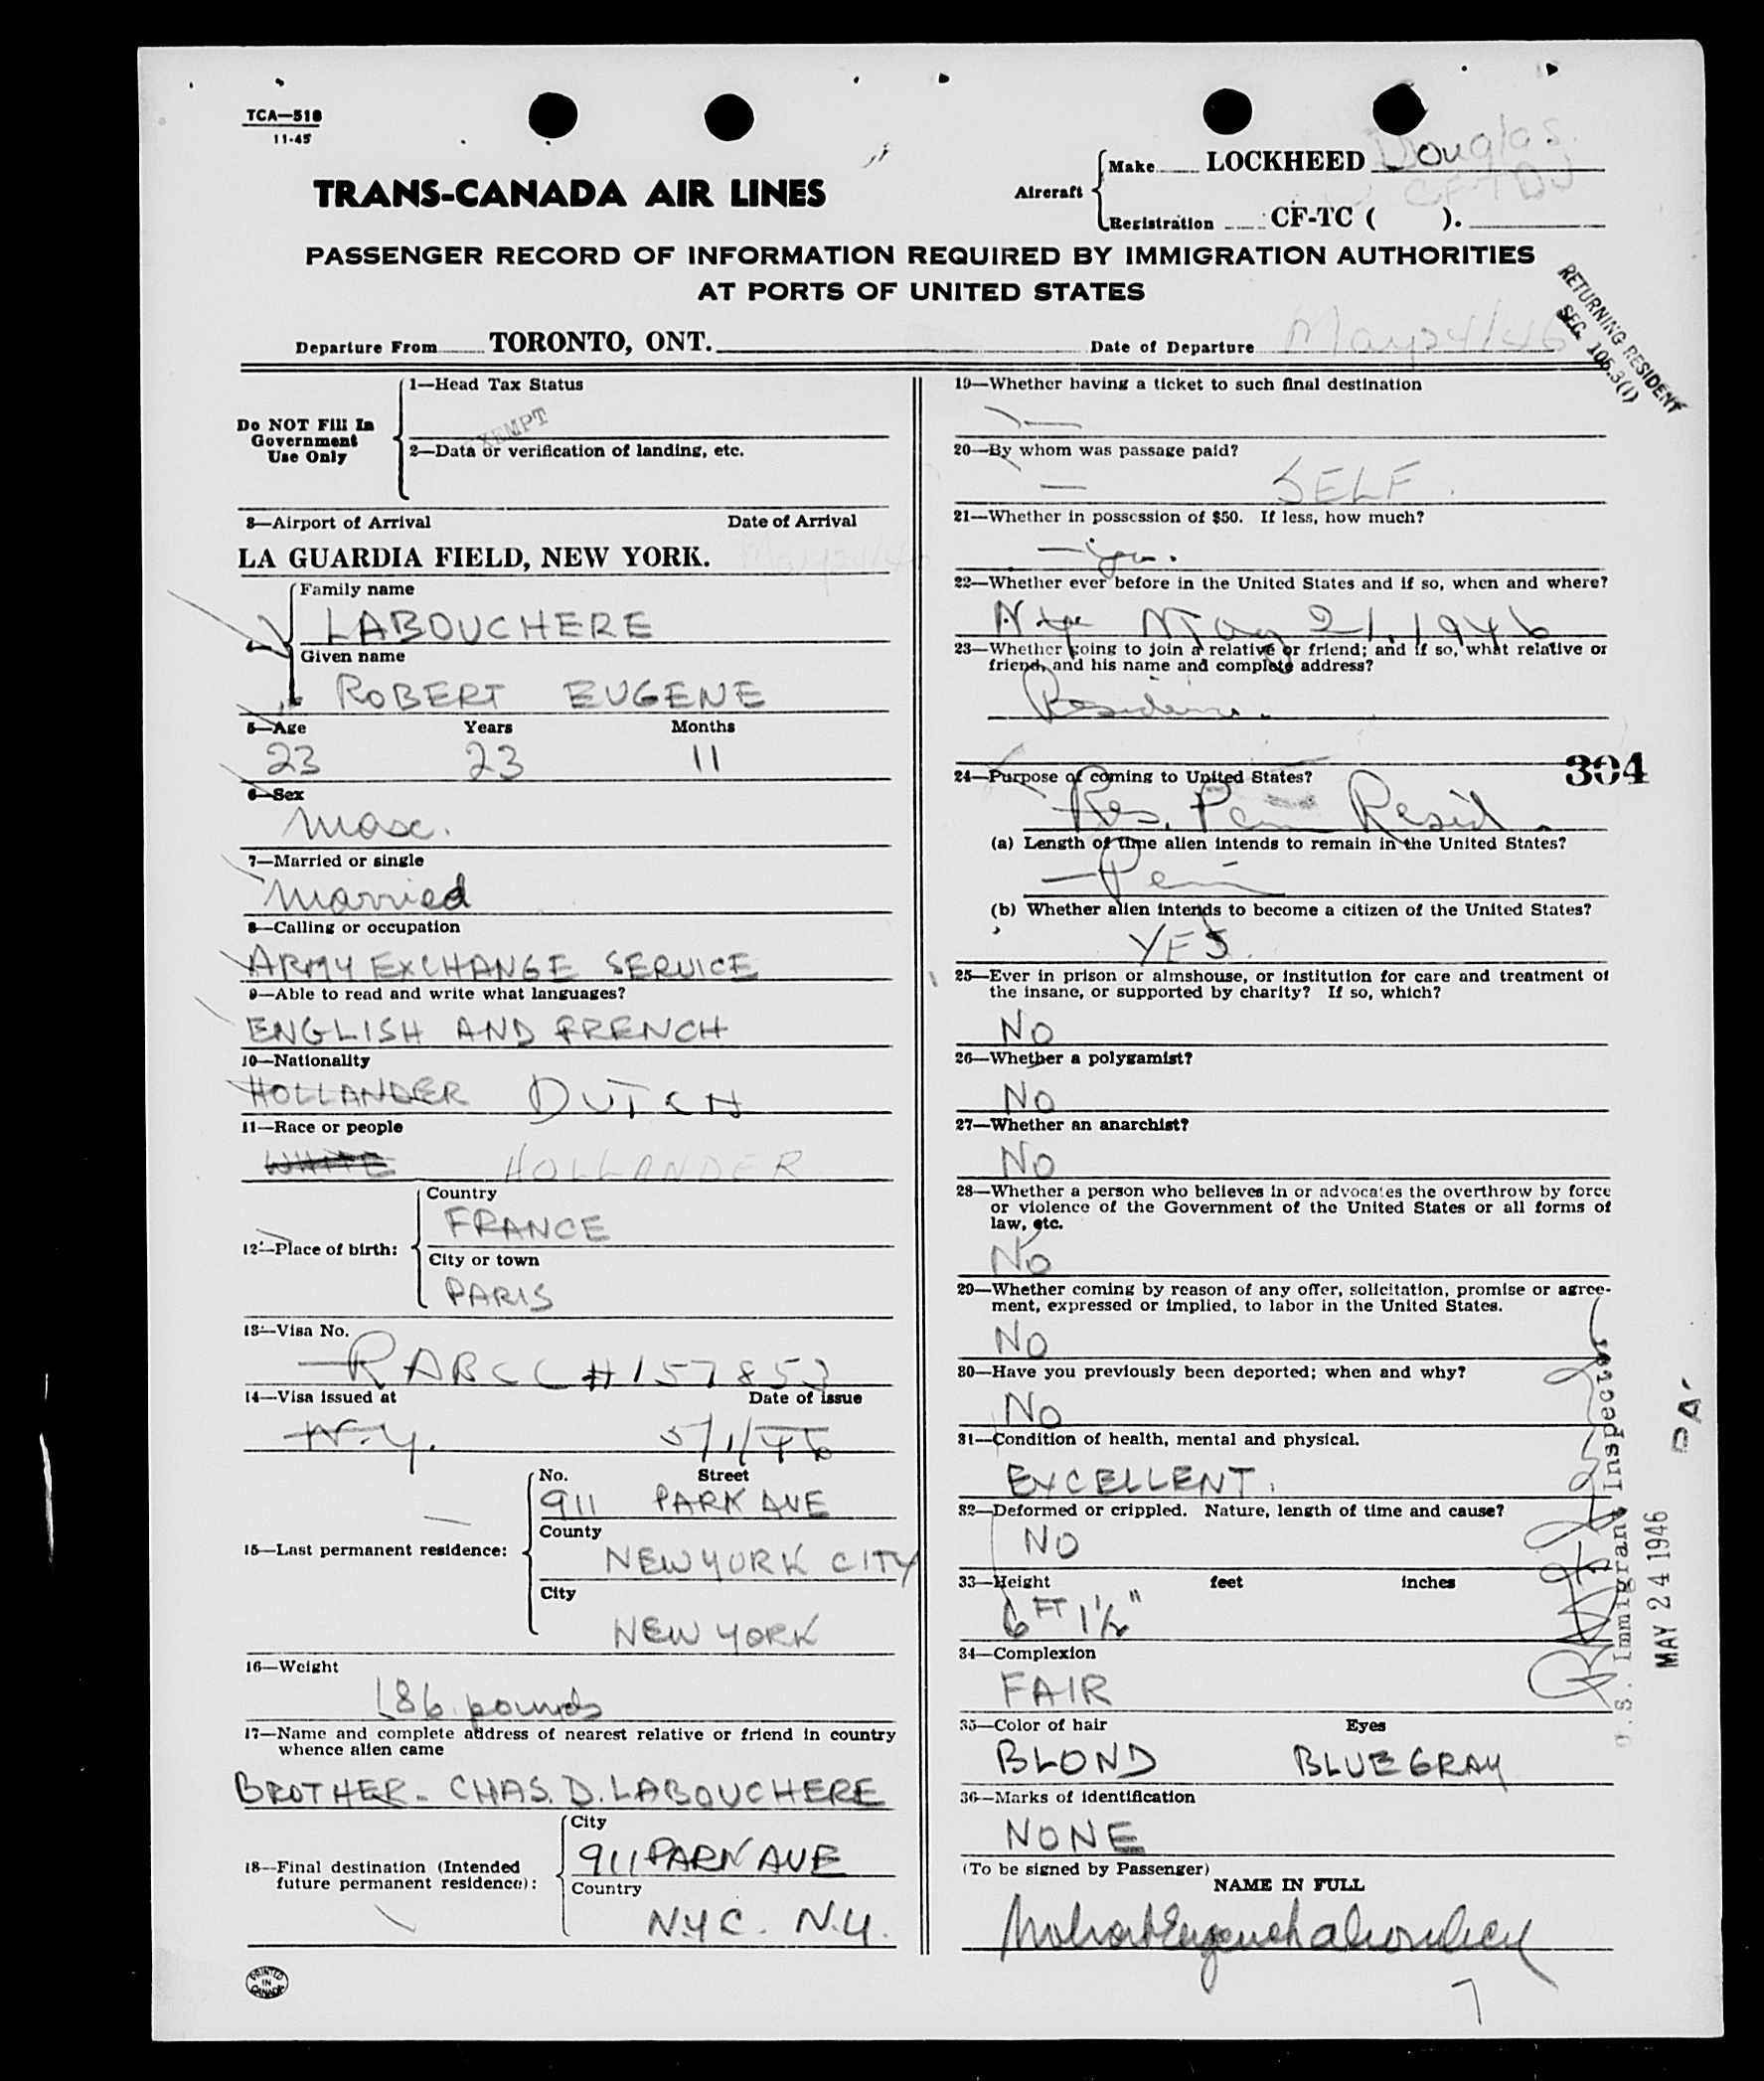 TCA—518
11-45
TRANS-CANADA AIR LINES
Aircraft
Make LOCKHEED Douglas
CF-TDJ
Registration CF-TC ( ).
PASSENGER RECORD OF INFORMATION REQUIRED BY IMMIGRATION AUTHORITIES
AT PORTS OF UNITED STATES
RETURNING RESIDENT
SEC. 106.3(1)
Departure From TORONTO, ONT. Date of Departure May 24/46
Do NOT Fill In
Government
Use Only
1—Head Tax Status
EXEMPT
2—Data or verification of landing, etc.
3—Airport of Arrival Date of Arrival
LA GUARDIA FIELD, NEW YORK. May 24/46
Family name
LABOUCHERE
Given name
ROBERT EUGENE
5—Age Years Months
23 23 11
6—Sex
Masc.
7—Married or single
Married
8—Calling or occupation
ARMY EXCHANGE SERVICE
9—Able to read and write what languages?
ENGLISH AND FRENCH
10—Nationality
HOLLANDER DUTCH
11—Race or people
WHITE HOLLANDER
12—Place of birth:
Country
FRANCE
City or town
PARIS
13—Visa No.
RABCC #157853
14—Visa issued at Date of issue
N.Y. 5/1/46
15—Last permanent residence:
No. Street
911 PARK AVE
County
NEW YORK CITY
City
NEW YORK
16—Weight
186 pounds
17—Name and complete address of nearest relative or friend in country
whence alien came
BROTHER - CHAS. D. LABOUCHERE
18—Final destination (Intended
future permanent residence):
City
911 PARK AVE
Country
N.Y.C. N.Y.
PRINTED
IN
CANADA
19—Whether having a ticket to such final destination
20—By whom was passage paid?
SELF.
21—Whether in possession of $50. If less, how much?
yes.
22—Whether ever before in the United States and if so, when and where?
May 21, 1946
23—Whether going to join a relative or friend; and if so, what relative or
friend, and his name and complete address?
Residence.
304
24—Purpose of coming to United States?
Res. Perm Resid.
(a) Length of time alien intends to remain in the United States?
Perm
(b) Whether alien intends to become a citizen of the United States?
YES.
25—Ever in prison or almshouse, or institution for care and treatment of
the insane, or supported by charity? If so, which?
NO
26—Whether a polygamist?
NO
27—Whether an anarchist?
NO
28—Whether a person who believes in or advocates the overthrow by force
or violence of the Government of the United States or all forms of
law, etc.
NO
29—Whether coming by reason of any offer, solicitation, promise or agree-
ment, expressed or implied, to labor in the United States.
NO
30—Have you previously been deported; when and why?
NO
31—Condition of health, mental and physical.
EXCELLENT.
32—Deformed or crippled. Nature, length of time and cause?
NO
33—Height feet inches
6 FT 1½"
34—Complexion
FAIR
35—Color of hair Eyes
BLOND BLUE GRAY
36—Marks of identification
NONE
(To be signed by Passenger)
NAME IN FULL
Robert Eugene Labouchere
7
U.S. Immigrant Inspector
MAY 24 1946